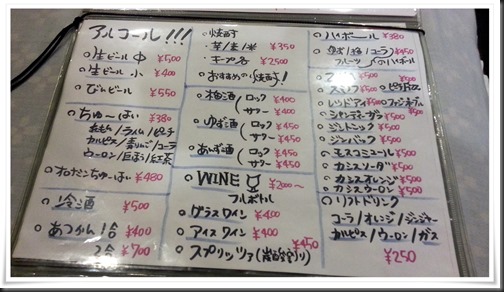 アルコール!!!
○生ビール 中 ¥500
○生ビール 小 ¥400
○びんビール ¥550
○ちゅ〜はい ¥380
/ライム/ピーチ
カルピス/青りんご/コーラ
ウーロン/巨ほう/紅茶
ちゅーはい ¥480
○冷酒 ¥500
○あつかん 1合 ¥400
2合 ¥700
○焼酎
・芋/麦/米 ¥350
・キープ各 ¥2500
○おすすめの焼酎!
○梅酒 (ロック ¥400
サワー ¥400
○ゆず酒 (ロック ¥450
サワー ¥450
○あんず酒 (ロック ¥450
サワー ¥450
○WINE ¥2000〜
フルボトル
○グラスワイン ¥400
○アイスワイン ¥400
○スプリッツァ ¥450
○ハイボール ¥380
/コーラ ¥450
フルーツ ハイボール
¥500
¥500
○レッドアイ ¥500
○シャンディーガフ ¥500
○ジントニック ¥500
○ジンバック ¥500
○モスコミュール ¥500
○カシスソーダ ¥500
○カシスオレンジ ¥500
○カシスウーロン ¥500
○ソフトドリンク
コーラ/オレンジ/ジンジャー
カルピス/ウーロン/ガス
¥250